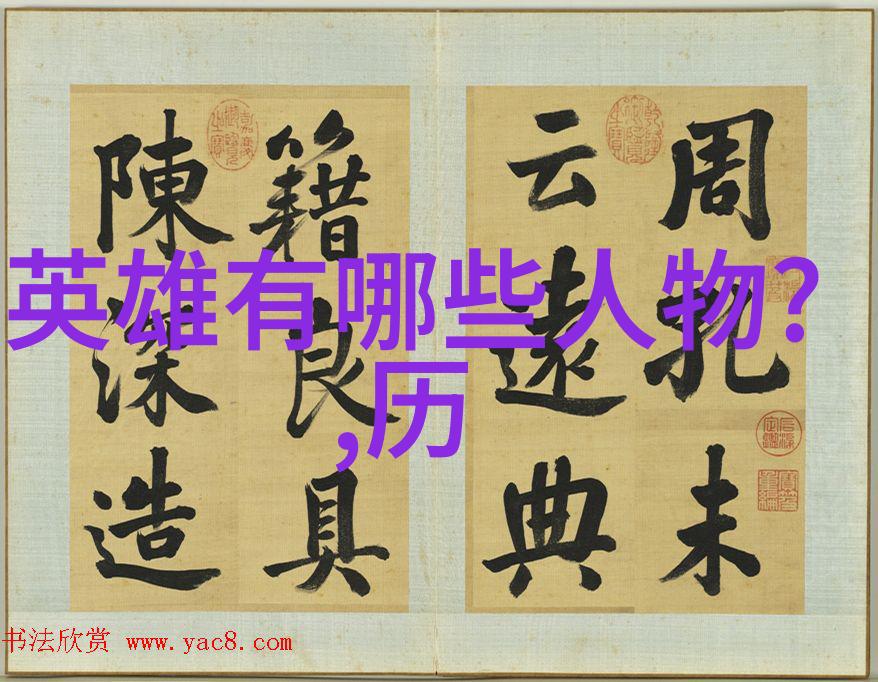 英雄有哪些人物?
,历
周孔未
云遠典
籍良具
陳深造
书法欣赏 www.yac8.com